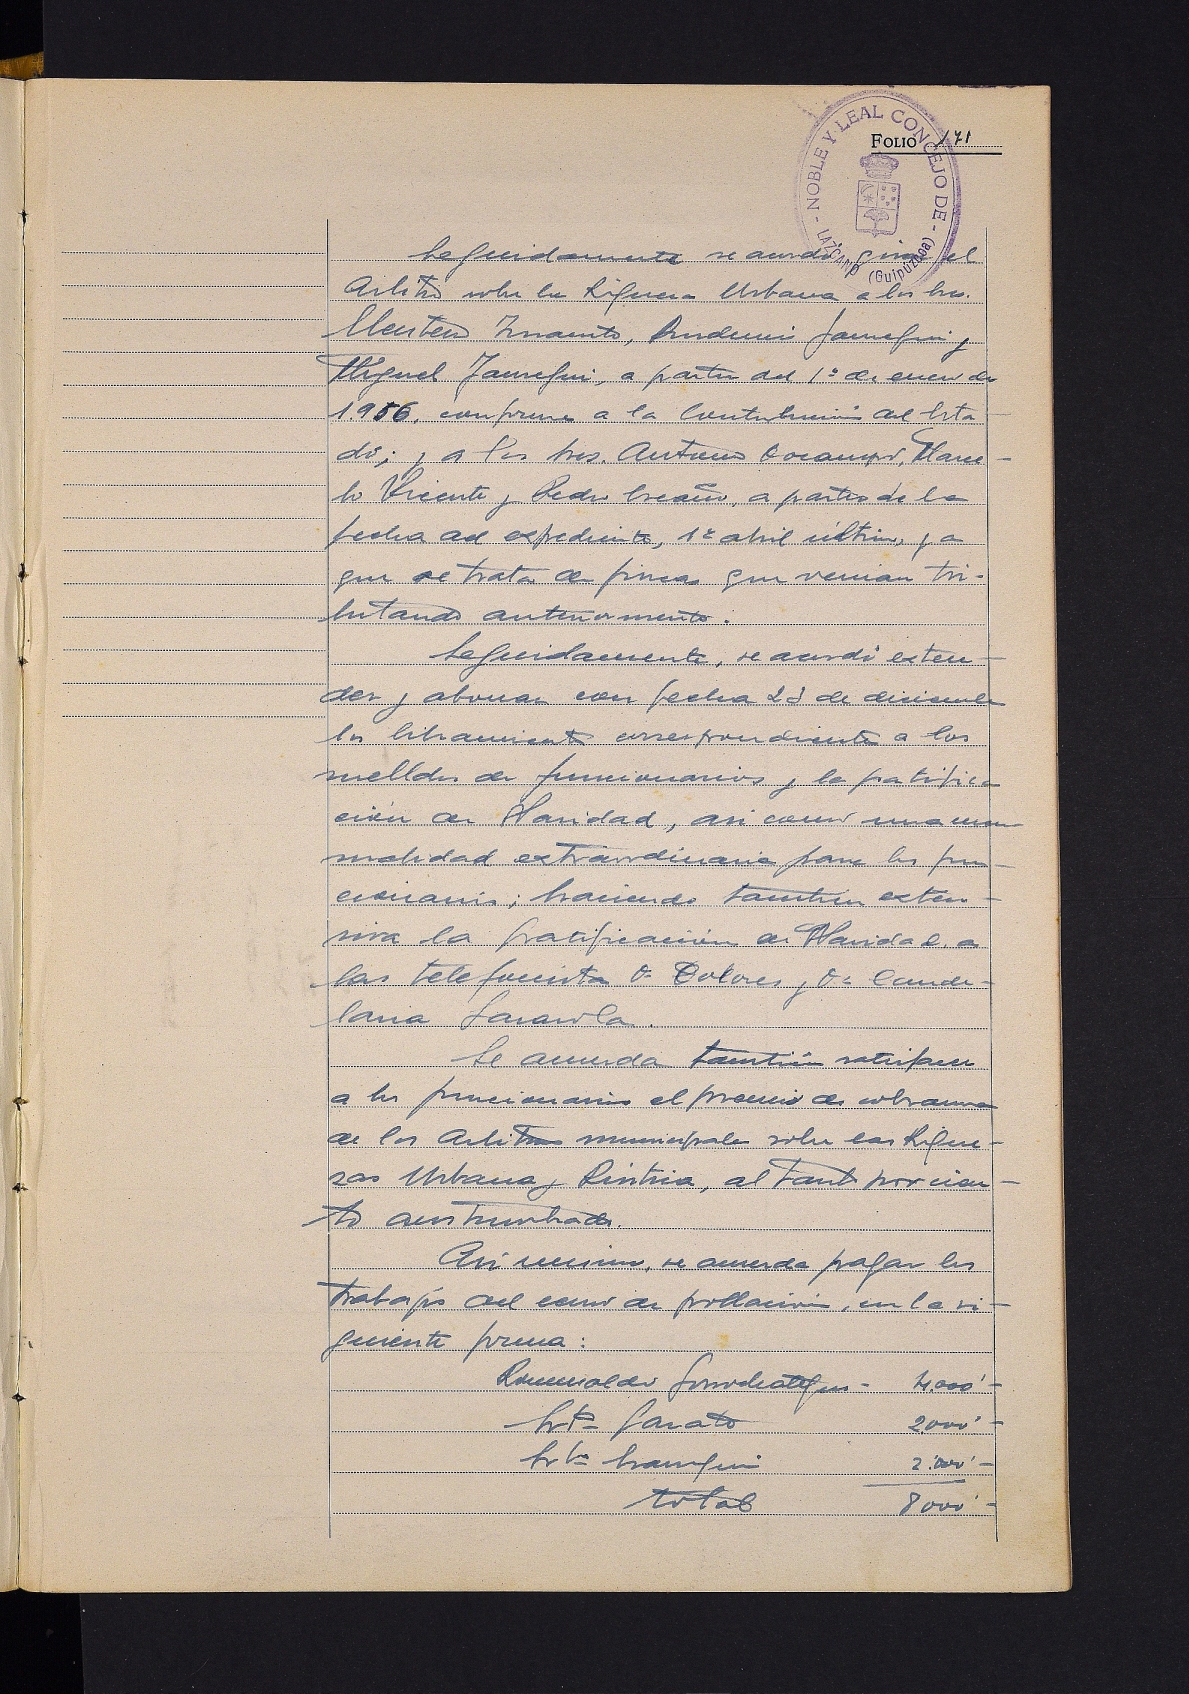 FOLIO 171
- NOBLE Y LEAL CONCEJO DE -
LAZCANO (Guipúzcoa)
Seguidamente se acordó girar el
Arbitrio sobre la Riqueza Urbana a los Sres.
Inausti, Prudencio Jauregui y
Miguel Jauregui, a partir del 1º de enero de
1.956, conforme a la Contribución del Esta-
do; y a los Sres. Antonio Ocampo, Marce-
lo Vicente y Pedro a partir de la
fecha del expediente, 1º abril último, ya
que se trata de fincas que venian tri-
butando anteriormente.
Seguidamente, se acordó exten-
der y abonar con fecha 23 de diciembre
los libramientos correspondientes a los
sueldos de funcionarios y la gratifica
ción de Navidad, asi como una men
sualidad extraordinaria para los fun-
cionarios; haciendo tambien exten-
siva la gratificación de Navidad a
las telefonistas Dª Dolores y Dª Cande-
laria
Se acuerda también satisfacer
a los funcionarios el premio de cobranza
de los Arbitrios municipales sobre las Rique-
zas Urbana y Rústica, al tanto por cien-
to acostumbrado.
Asi mismo, se acuerda pagar los
trabajos del censo de población, en la si-
guiente forma:
Romualdo - 4.000'-
Srta. Garate 2000'-
Srta. 2.000'-
Total 8000'-